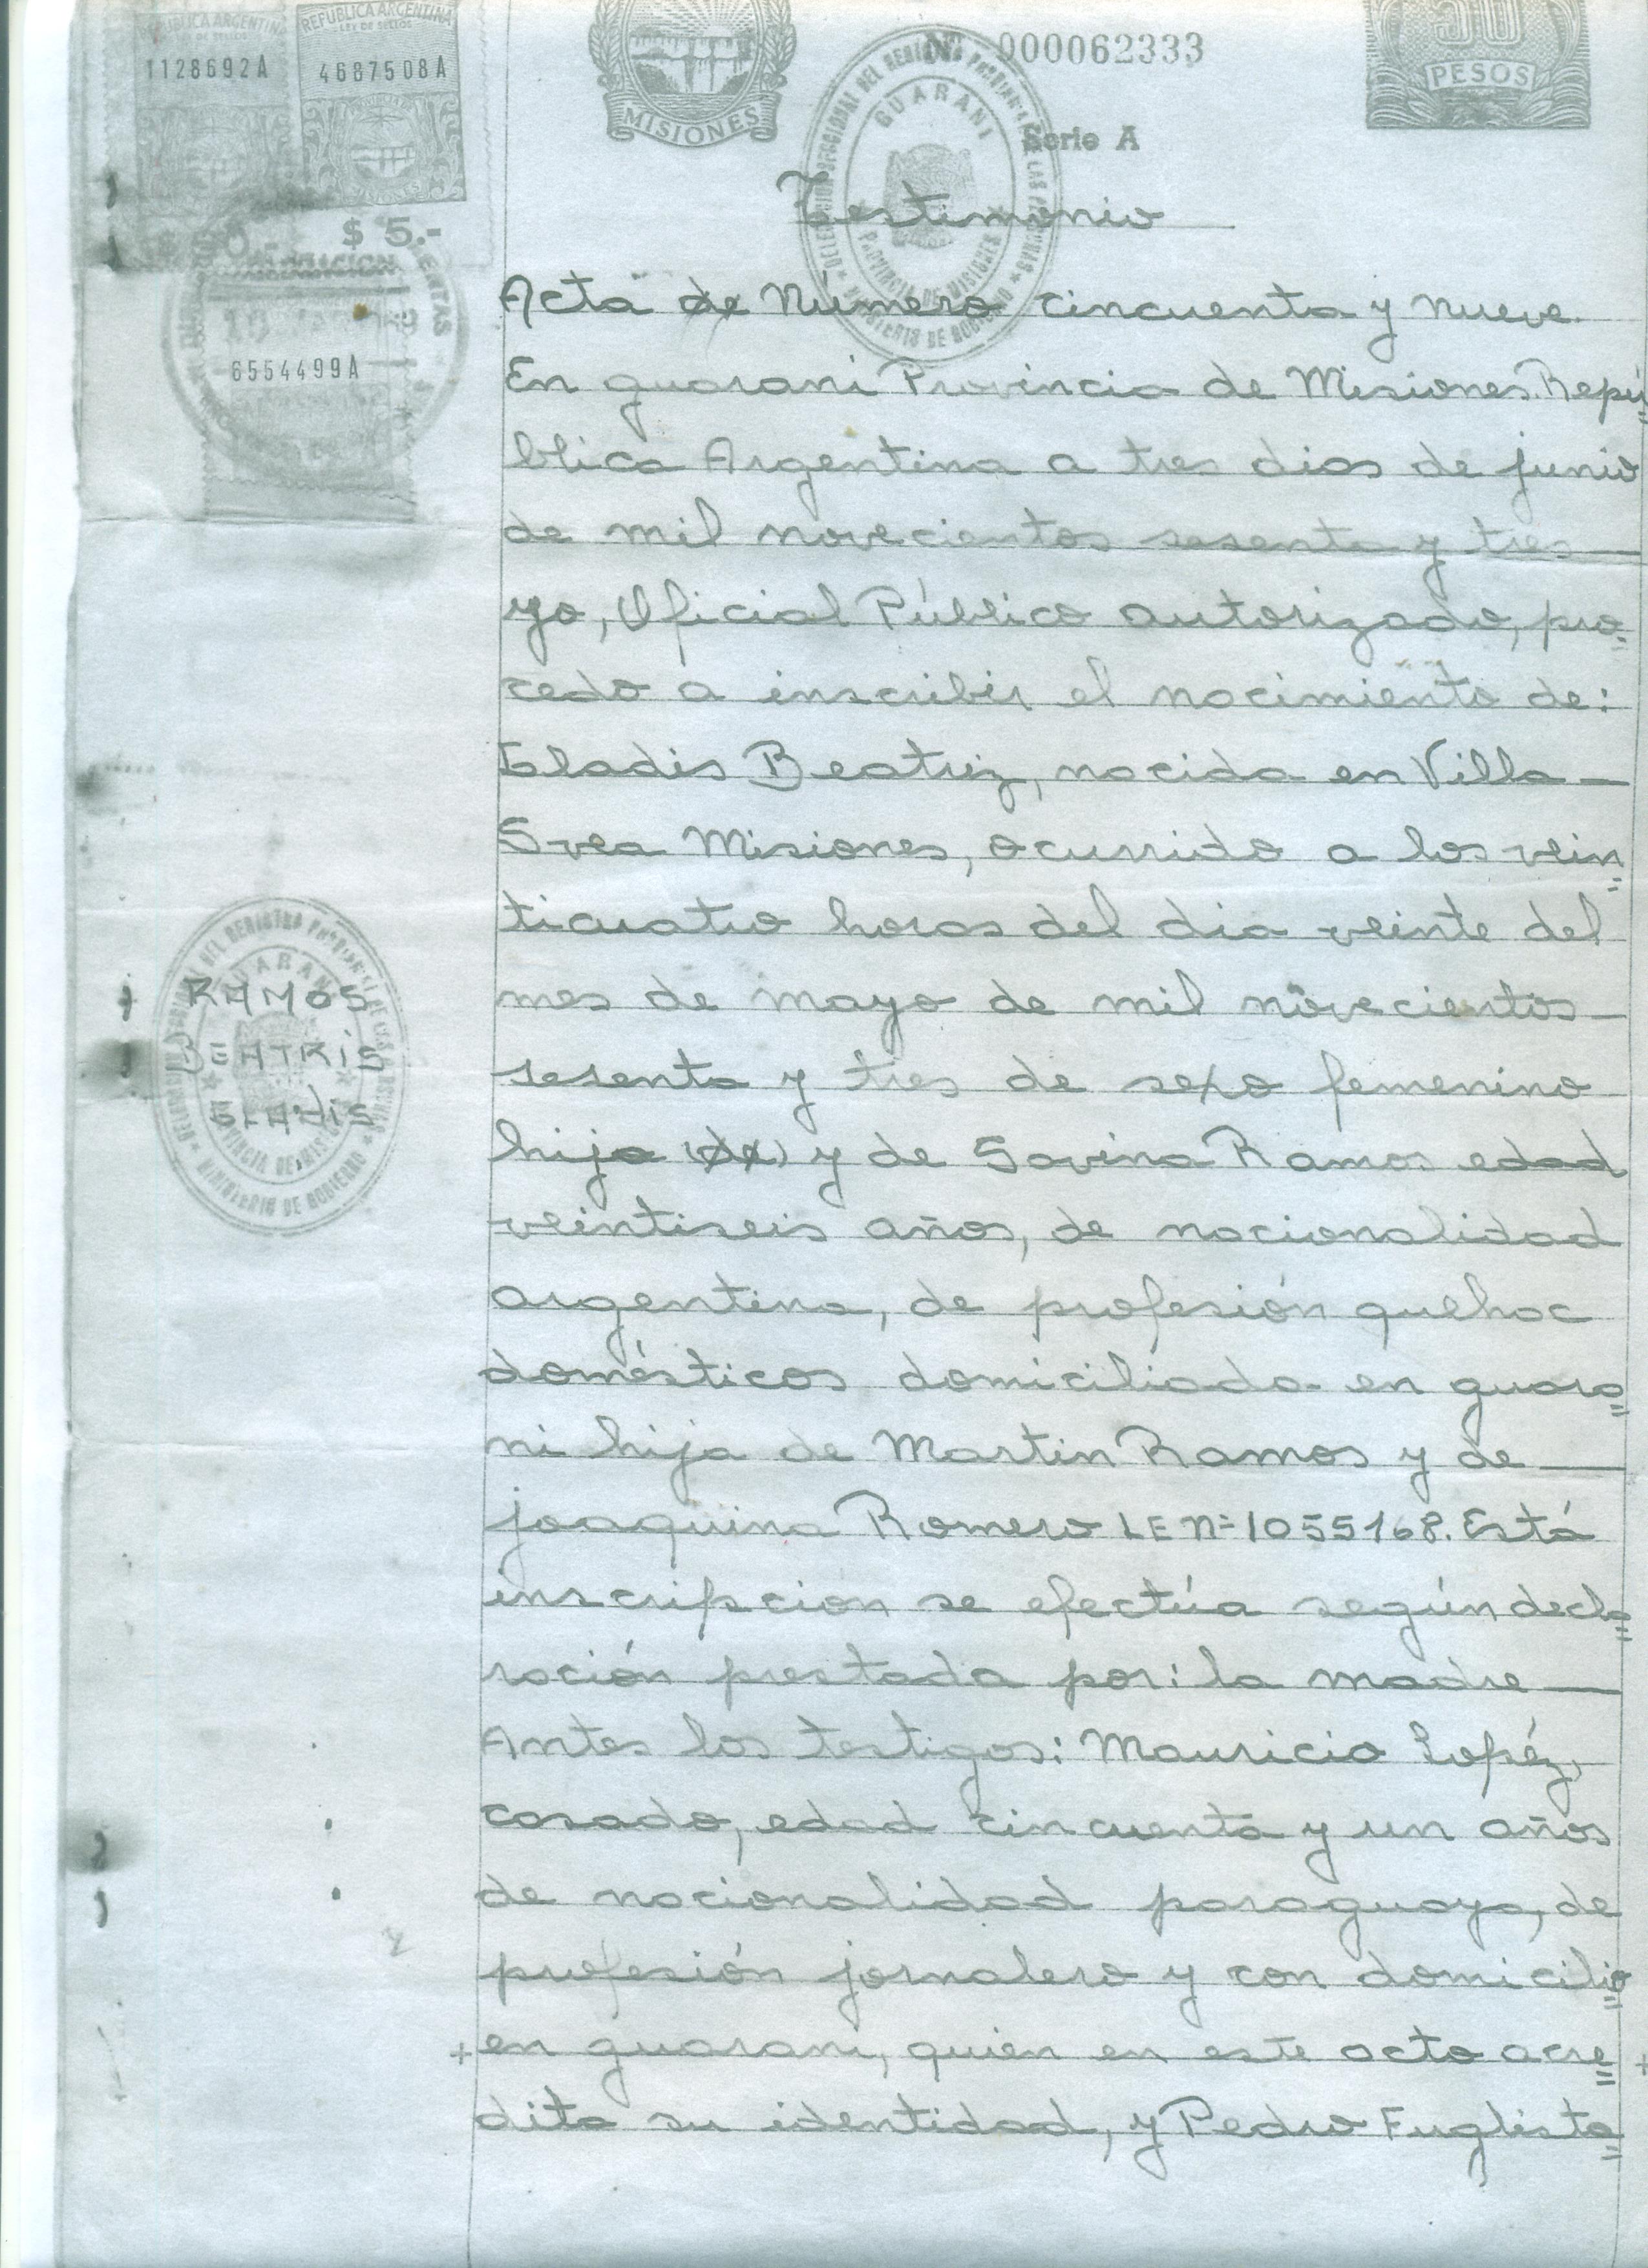 REPUBLICA ARGENTINA
LEY DE SELLOS
1128692A
REPUBLICA ARGENTINA
LEY DE SELLOS
4687508A
MISIONES
$ 5.-
6554499A
MISIONES
Nº 000062333
Serie A
50
PESOS
DELEGACION SECCIONAL DEL REGISTRO PROVINCIAL DE LAS PERSONAS
GUARANI
PROVINCIA DE MISIONES
MINISTERIO DE GOBIERNO
Testimonio
Acta de Número cincuenta y nueve.
En guarani Provincia de Misiones. Repú=
blica Argentina a tres dias de junio
de mil novecientos sesenta y tres —
yo, Oficial Público autorizado, pro=
cedo a inscribir el nacimiento de:
Gladis Beatriz, nacida en Villa —
Svea Misiones, ocurrido a los vein=
ticuatro horas del dia veinte del
mes de mayo de mil novecientos —
sesenta y tres de sexo femenino
hija (de) y de Savina Ramos edad
veintiseis años, de nacionalidad
argentina, de profesión quehac
domésticos domiciliada en guara=
ni hija de Martin Ramos y de —
joaquina Romero LE Nº 1055168. Está
inscripcion se efectúa según decla=
ración prestada por: la madre —
Antes los testigos: Mauricio Lopéz,
casado, edad cincuenta y un años
de nacionalidad paraguaya, de
profesión jornalero y con domicilio=
+ en guarani, quien en este acto acre= +
dita su identidad, y Pedro Euglista=
RAMOS
BEATRIS
GLADIS
DELEGACION SECCIONAL DEL REGISTRO PROVINCIAL DE LAS PERSONAS
GUARANI
PROVINCIA DE MISIONES
MINISTERIO DE GOBIERNO